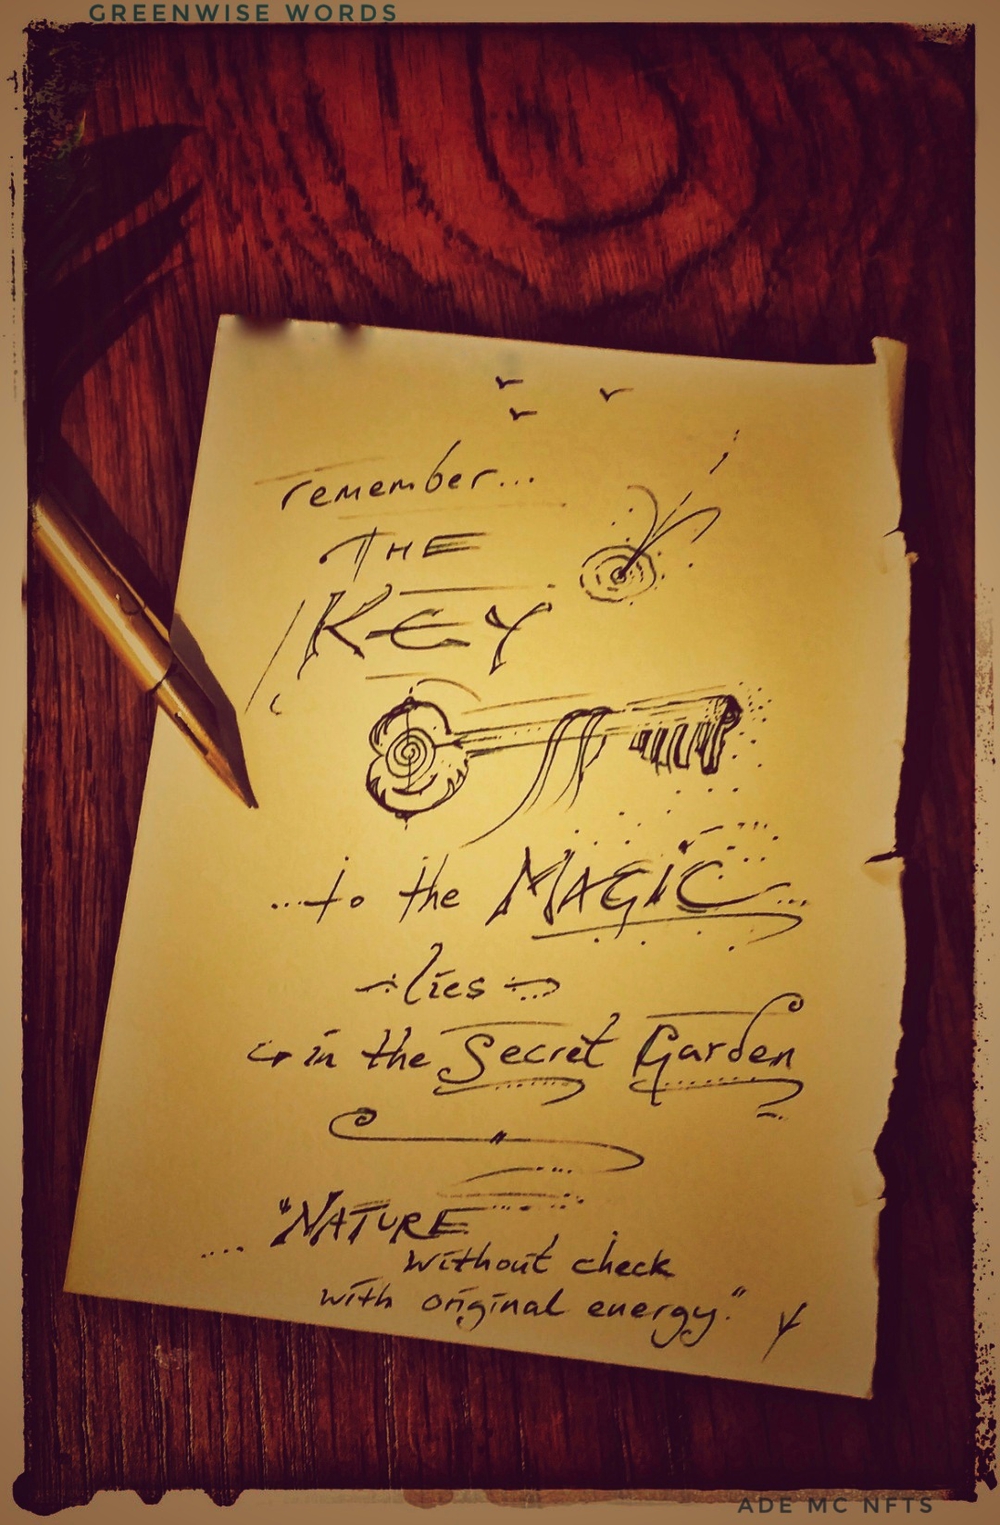 GREENWISE WORDS
remember...
THE
KEY
...to the MAGIC...
lies
in the Secret Garden
"NATURE
without check
with original energy."
ADE MC NFTS